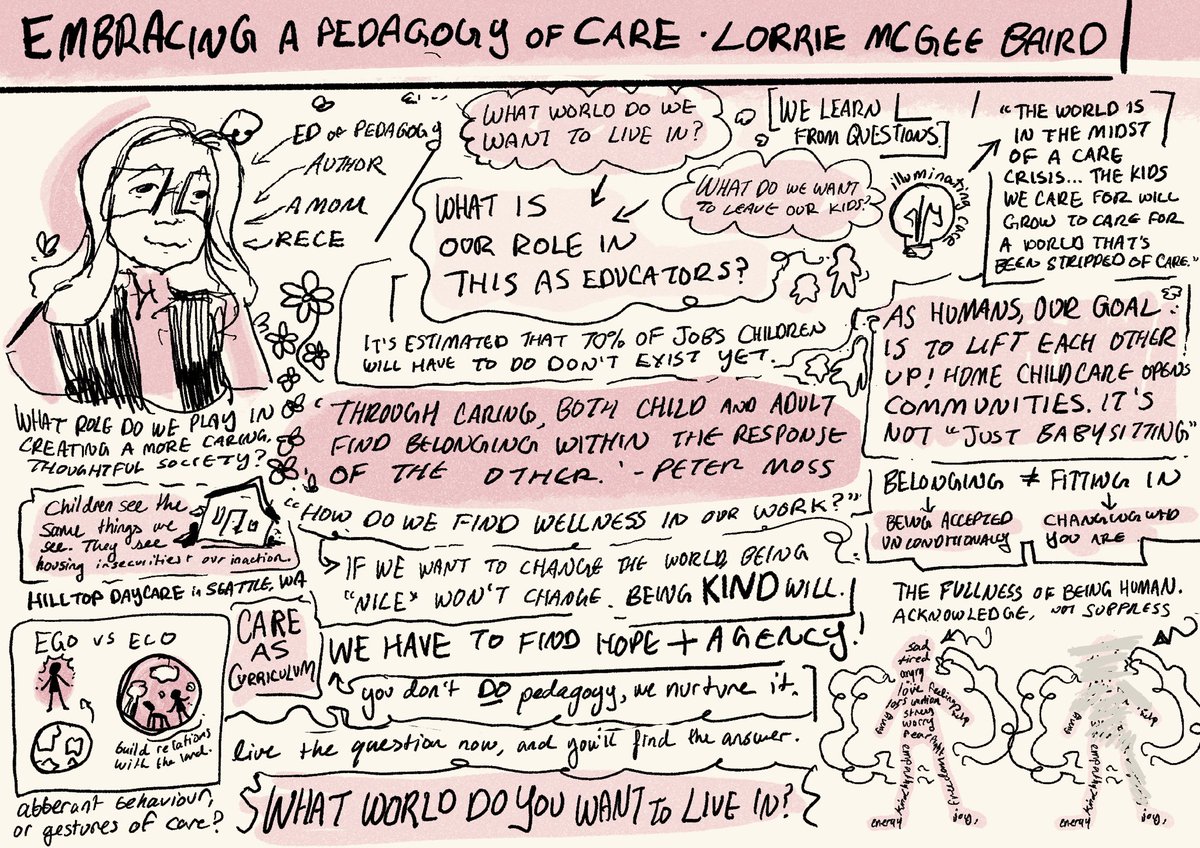 EMBRACING A PEDAGOGY OF CARE · LORRIE MCGEE BAIRD
ED OF PEDAGOGY
AUTHOR
A MOM
RECE
WHAT WORLD DO WE
WANT TO LIVE IN?
WHAT DO WE WANT
TO LEAVE OUR KIDS?
WHAT IS
OUR ROLE IN
THIS AS EDUCATORS?
WE LEARN
FROM QUESTIONS.
illuminating care
"THE WORLD IS
IN THE MIDST
OF A CARE
CRISIS... THE KIDS
WE CARE FOR WILL
GROW TO CARE FOR
A WORLD THAT'S
BEEN STRIPPED OF CARE."
IT'S ESTIMATED THAT 70% OF JOBS CHILDREN
WILL HAVE TO DO DON'T EXIST YET.
AS HUMANS, OUR GOAL
IS TO LIFT EACH OTHER
UP! HOME CHILDCARE OPENS
COMMUNITIES. IT'S
NOT "JUST BABYSITTING"
WHAT ROLE DO WE PLAY IN
CREATING A MORE CARING,
THOUGHTFUL SOCIETY?
'THROUGH CARING, BOTH CHILD AND ADULT
FIND BELONGING WITHIN THE RESPONSE
OF THE OTHER.' - PETER MOSS
"HOW DO WE FIND WELLNESS IN OUR WORK?"
BELONGING ≠ FITTING IN
BEING ACCEPTED
UNCONDITIONALLY
CHANGING WHO
YOU ARE
Children see the
same things we
see. They see
housing insecurities + our inaction.
HILLTOP DAYCARE in SEATTLE, WA
IF WE WANT TO CHANGE THE WORLD, BEING
"NICE" WON'T CHANGE. BEING KIND WILL.
THE FULLNESS OF BEING HUMAN.
ACKNOWLEDGE, NOT SUPPRESS
EGO VS ECO
build relations
with the land.
CARE
AS
CURRICULUM
WE HAVE TO FIND HOPE + AGENCY!
you don't DO pedagogy, we nurture it.
live the question now, and you'll find the answer.
abberant behaviour,
or gestures of care?
WHAT WORLD DO YOU WANT TO LIVE IN?
sad
tired
angry
love
stress
worry
fear
energy
joy,
energy
joy,